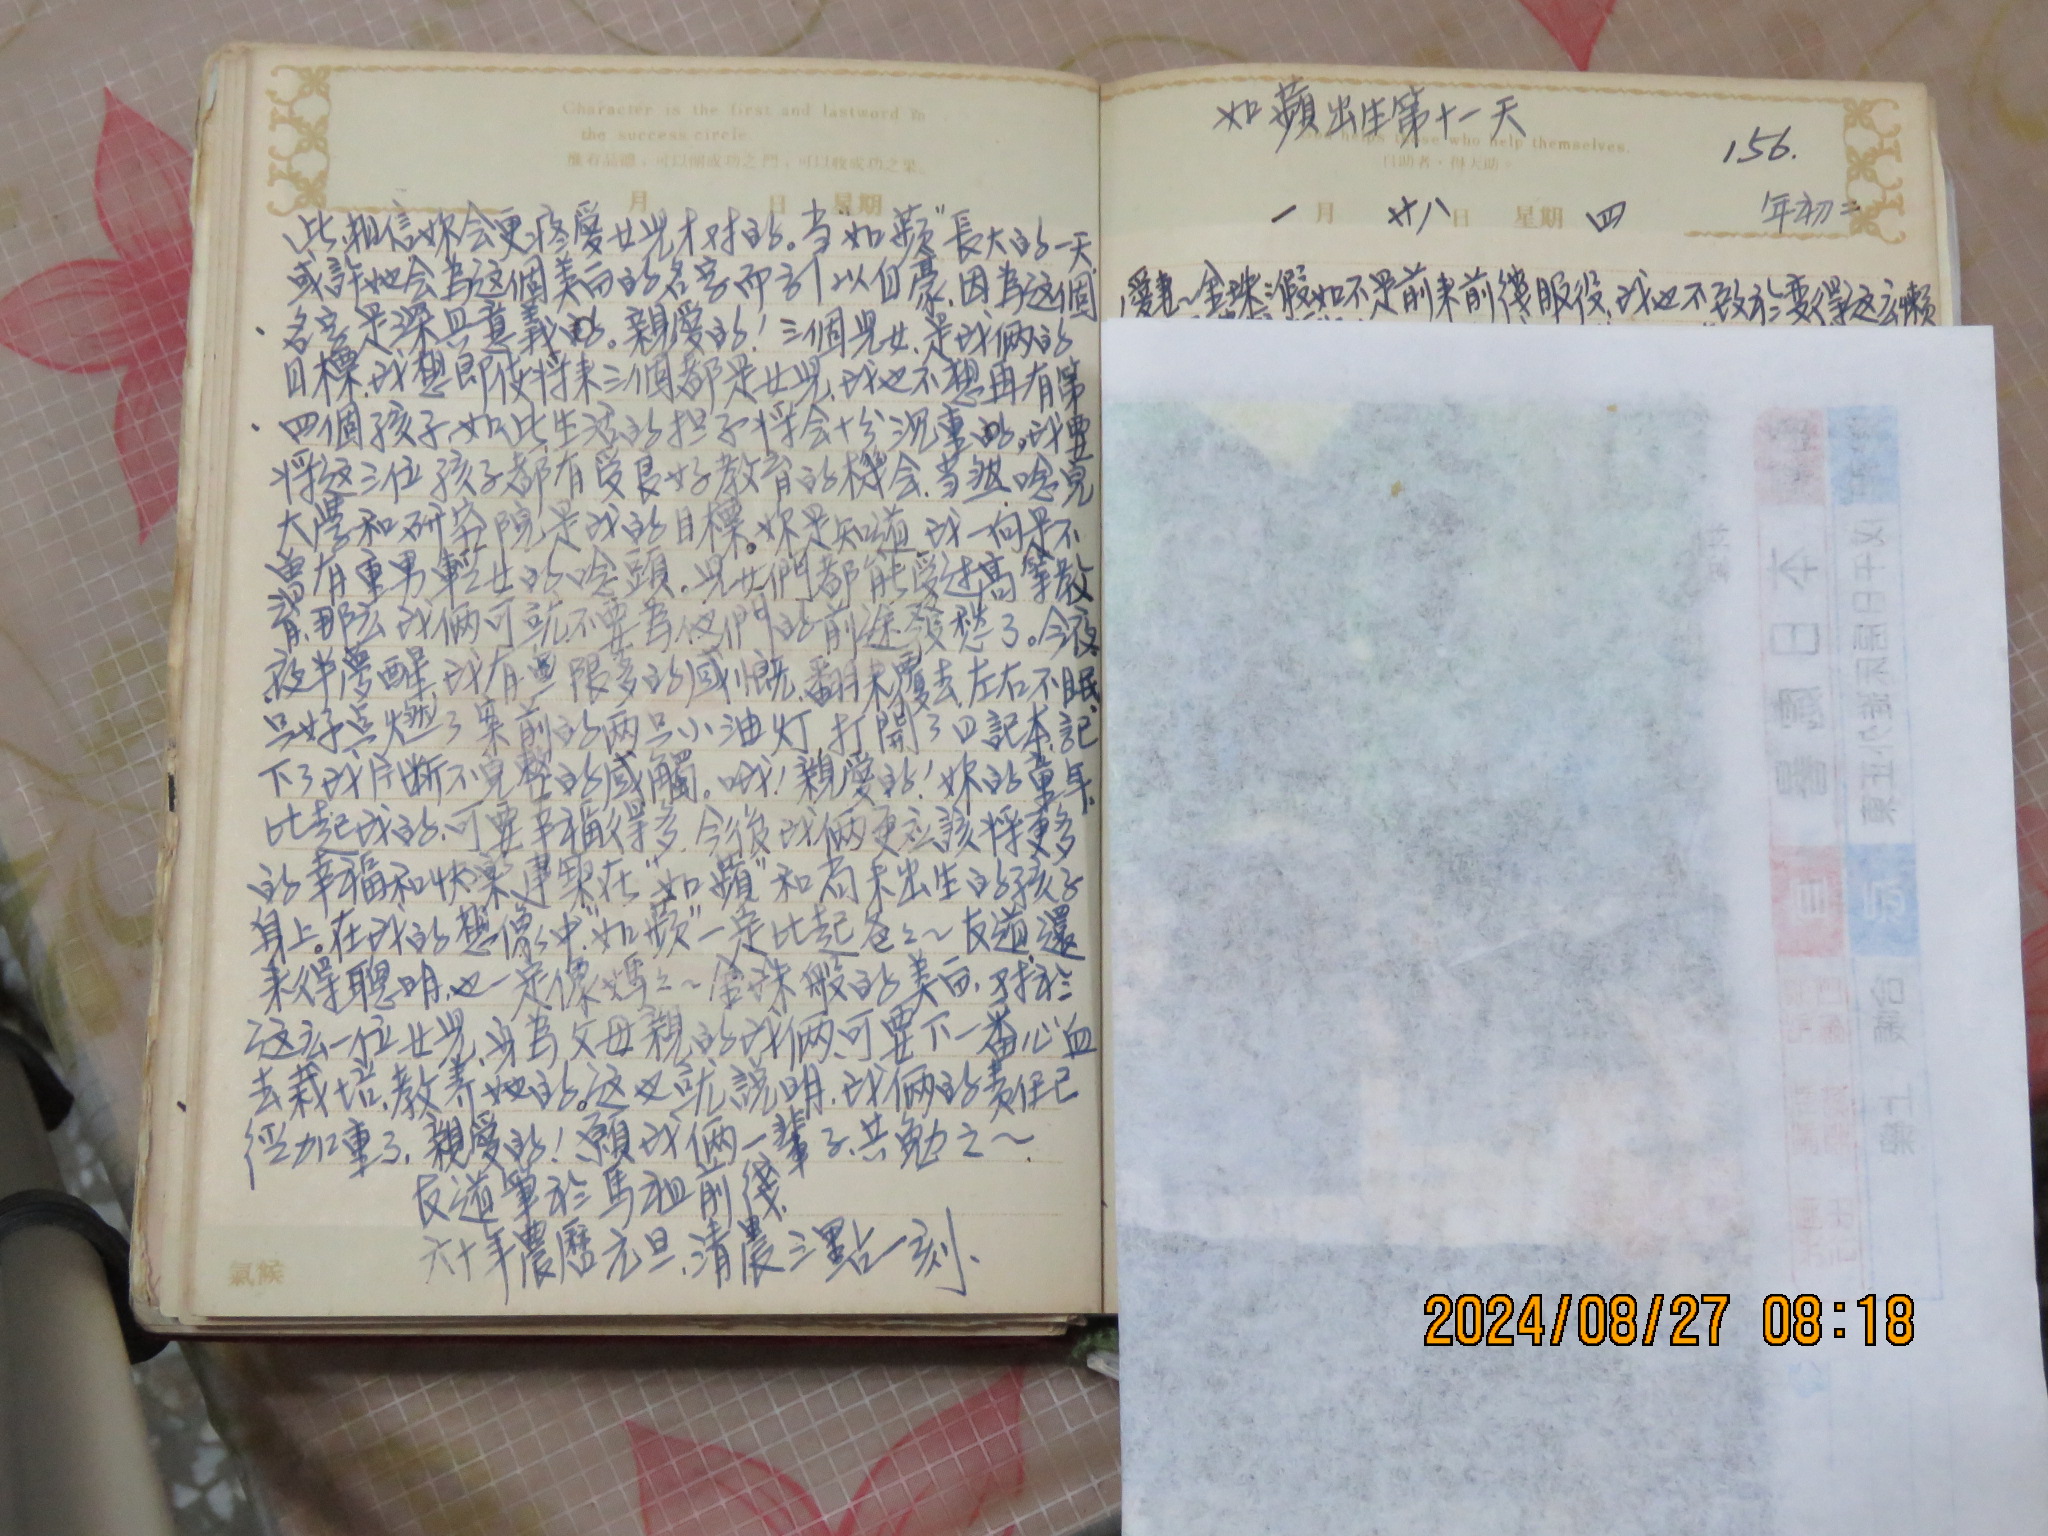 Character is the first and lastword in
the success circle
惟有品德，可以開成功之門，可以收成功之果。
月 日 星期
此,相信妳会更疼愛女児才对的。当"如蘋"長大的一天,
或許她会為这個美丽的名字而引以自豪,因為这個
名字是深具意義的。親愛的！三個児女,是我俩的
目標,我想即使将来三個都是女児,我也不想再有第
四個孩子,如此生活的担子将会十分沉重的。我要
将这三位孩子都有受良好教育的機会,当然,唸完
大學和研究院是我的目標。妳是知道,我一向是不
曾有重男輕女的唸頭,児女們都能受过高等教
育,那么我俩可就不要為他們的前途發愁了。今夜
夜半夢醒,我有無限多的感慨,翻来覆去,左右不眠,
只好点燃了案前的两只小油灯,打開了日記本,記
下了我片断不完整的感觸。哦！親愛的！妳的童年,
比起我的,可要幸福得多,今後我俩更应該将更多
的幸福和快樂建築在"如蘋"和尚未出生的孩子
身上。在我的想像中,"如蘋"一定比起爸々～友道,還
来得聰明,也一定像媽々～金珠般的美丽,对於
这么一位女児,身為父母親的我俩,可要下一番心血
去栽培,教养她的。这也就說明,我俩的責任已
經加重了,親愛的！願我俩一輩子,共勉之～.
友道筆於馬祖前線.
六十年農曆元旦,清晨三點一刻.
氣候
如蘋出生第十一天
helps those who help themselves.
自助者，得天助。
156.
一月 廿八日 星期 四 年初二
愛妻～金珠：假如不是前来前线服役,我也不致於变得这么懒
2024/08/27 08:18